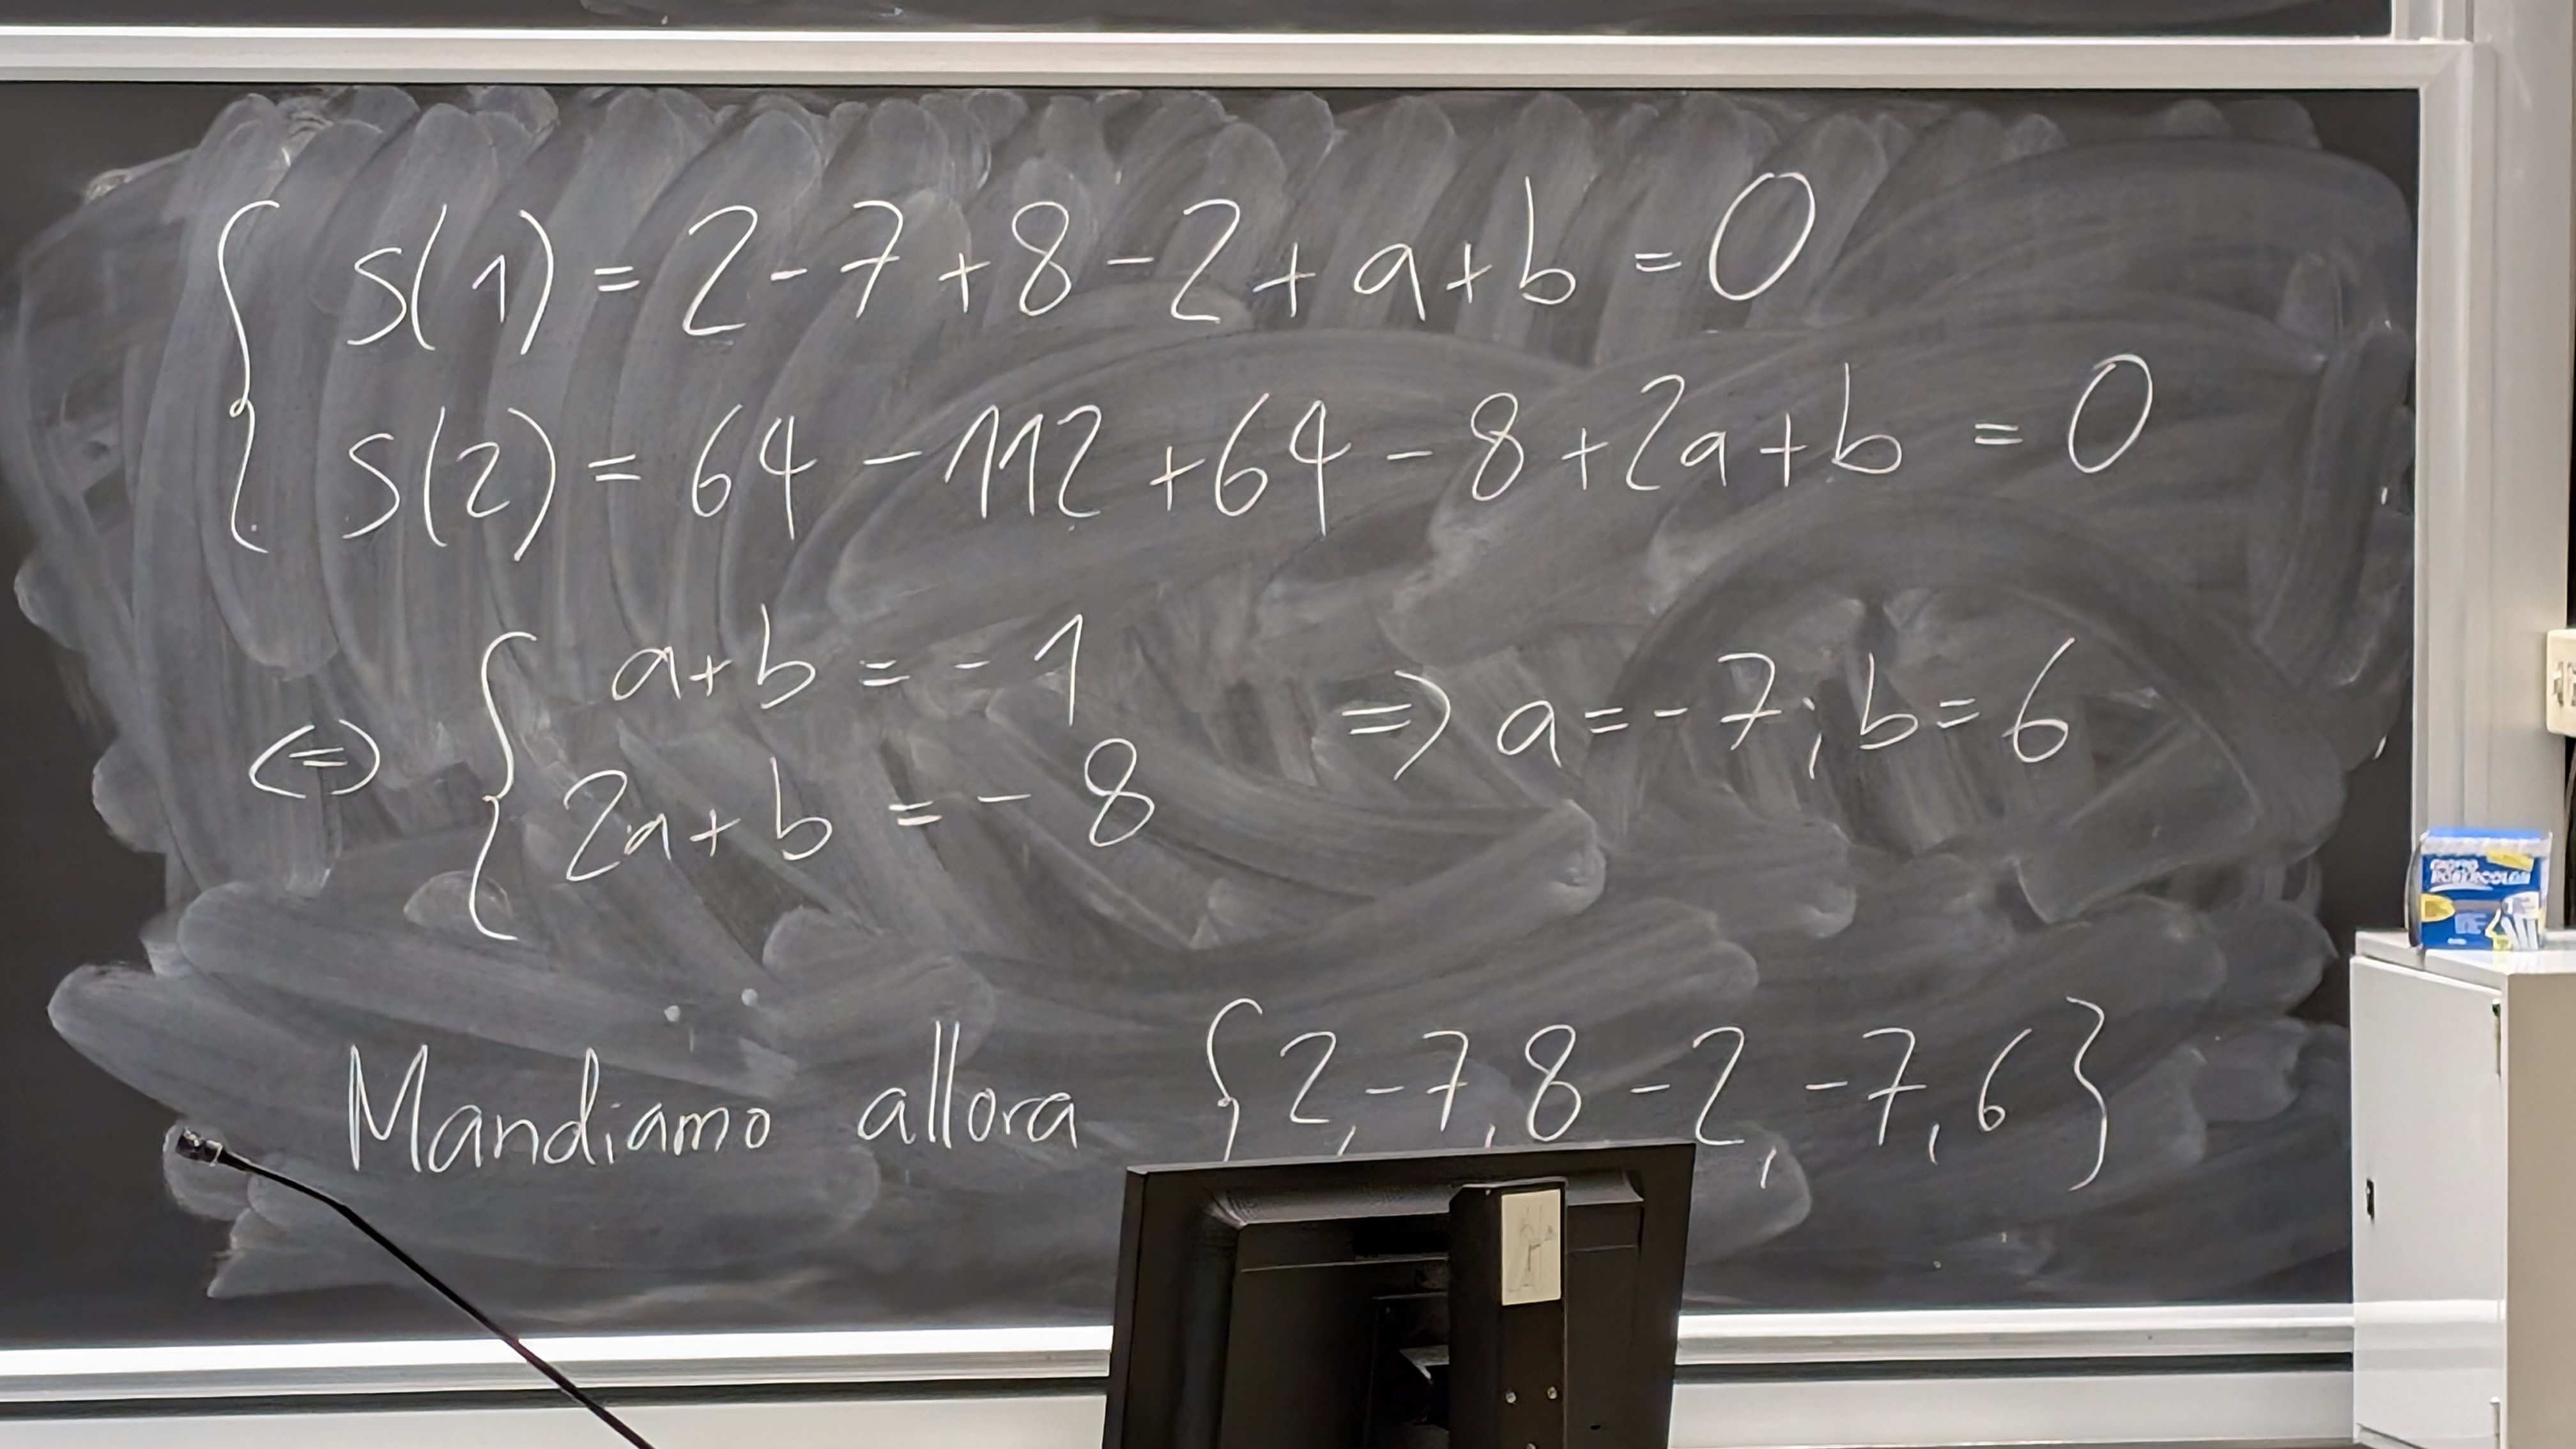 { S(1) = 2 - 7 + 8 - 2 + a + b = 0
S(2) = 64 - 112 + 64 - 8 + 2a + b = 0
⇔ { a + b = - 1
2a + b = - 8
⇒ a = - 7; b = 6
Mandiamo allora {2, -7, 8 -2, -7, 6}
ROBERCOLOR